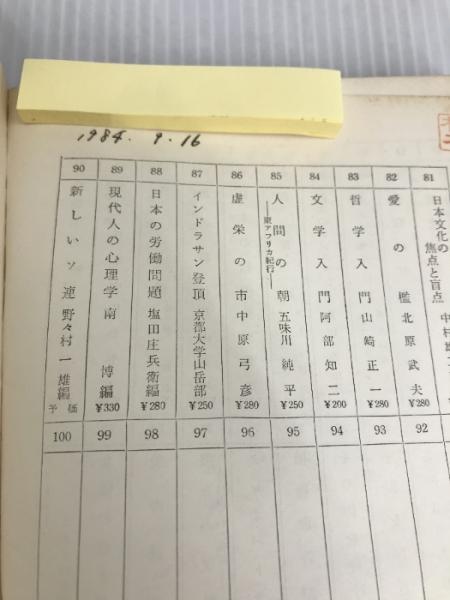 1984. 9. 16
81
日本文化の焦点と盲点
82
愛の檻 北原武夫
¥280
83
哲学入門 山崎正一
¥200
84
文学入門 阿部知二
¥200
85
人間の朝 ―東アフリカ紀行― 五味川純平
¥250
86
虚栄の市 中原弓彦
¥280
87
インドラサン登頂 京都大学山岳部
¥250
88
日本の労働問題 塩田庄兵衛編
¥280
89
現代人の心理学 南博編
¥330
90
新しいソ連 野々村一雄編
予価
92
93
94
95
96
97
98
99
100